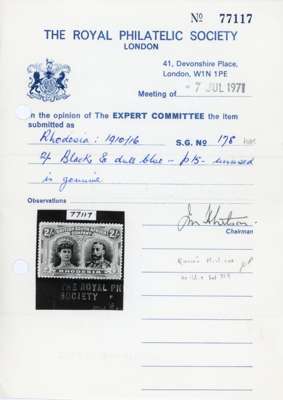 Nº 77117
THE ROYAL PHILATELIC SOCIETY
LONDON
41, Devonshire Place,
London, W1N 1PE
Meeting of - 7 JUL 1971
In the opinion of The EXPERT COMMITTEE the item
submitted as
Rhodesia: 1910/16 S.G. No 178
2/- Black & dull blue - p15 - unused
is genuine
Observations
77117
2/- 2/-
RHODESIA
THE ROYAL PH
SOCIETY
Chairman